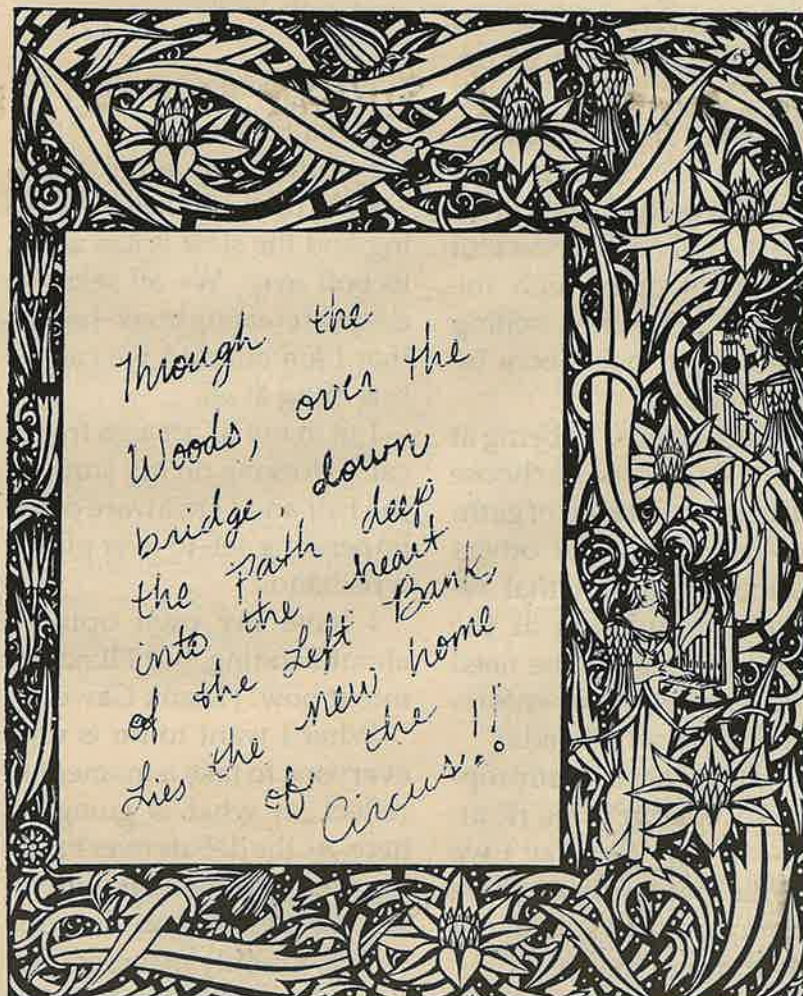 Through the
Woods, over the
bridge down
the path deep
into the heart
of the Left Bank,
Lies the new home
of the
Circus..!!